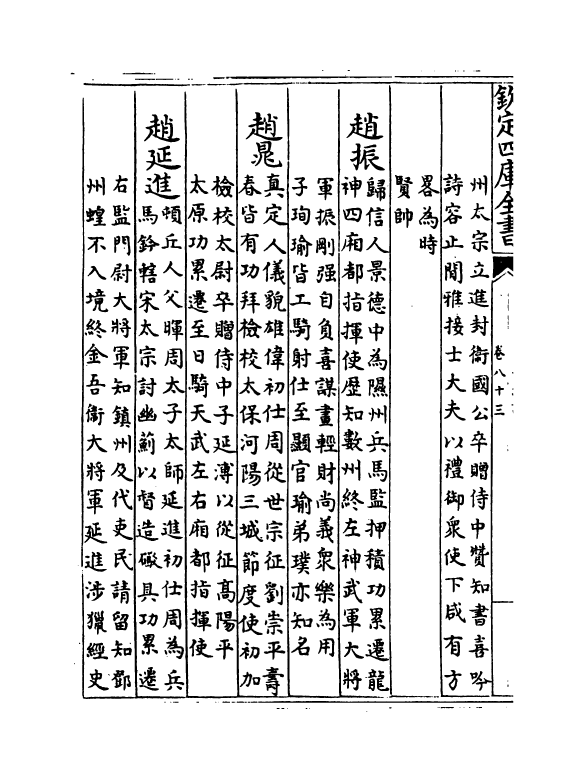 欽定四庫全書
卷八十三
州太宗立進封衛國公卒贈侍中贊知書喜吟
詩容止閒雅接士大夫以禮御衆使下咸有方
畧為時
賢帥
趙振
歸信人景德中為隰州兵馬監押積功累遷龍
神四廂都指揮使歴知數州終左神武軍大將
軍振剛强自負喜謀畫輕財尚義衆樂為用
子珣瑜皆工騎射仕至顯官瑜弟璞亦知名
趙晁
真定人儀貌雄偉初仕周從世宗征劉崇平壽
春皆有功拜檢校太保河陽三城節度使初加
檢校太尉卒贈侍中子延溥以從征髙陽平
太原功累遷至日騎天武左右廂都指揮使
趙延進
頓丘人父暉周太子太師延進初仕周為兵
馬鈐轄宋太宗討幽薊以督造礮具功累遷
右監門尉大將軍知鎮州及代吏民請留知鄧
州蝗不入境終金吾衛大將軍延進涉獵經史